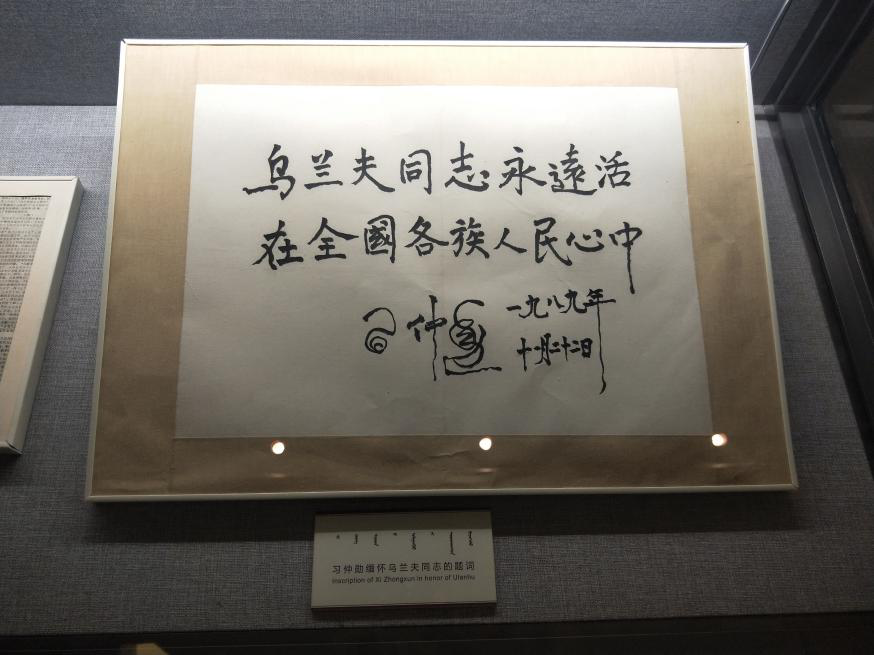 乌兰夫同志永遠活
在全國各族人民心中
习仲勋
一九八九年
十一月二十二日
习仲勋缅怀乌兰夫同志的题词
Inscription of Xi Zhongxun in honor of Ulanhu